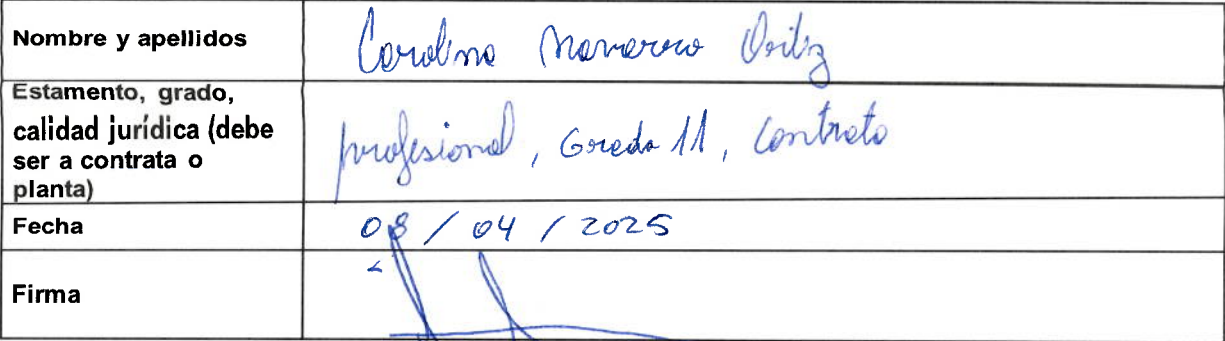 Nombre y apellidos
Carolina Navarro Ortiz
Estamento, grado,
calidad jurídica (debe
ser a contrata o
planta)
profesional, Grado 11, Contrata
Fecha
08 / 04 / 2025
Firma